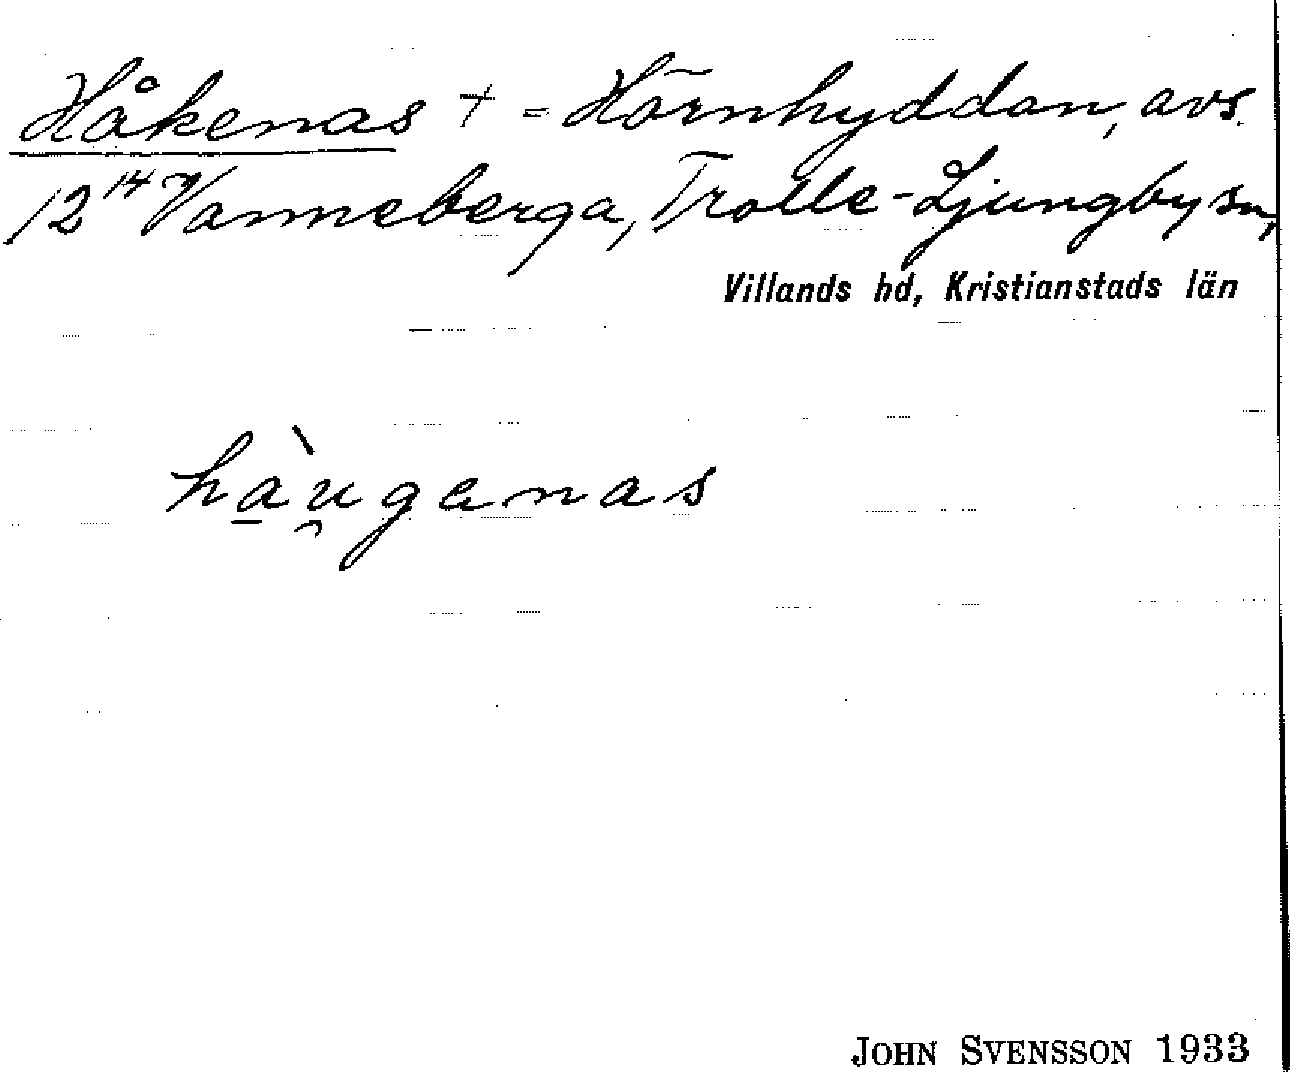 Håkenas + = Hörnhyddan, avs.
12¹⁴ Vanneberga, Trolle-Ljungby sn,
Villands hd, Kristianstads län
hà̠u̯ganas
JOHN SVENSSON 1933